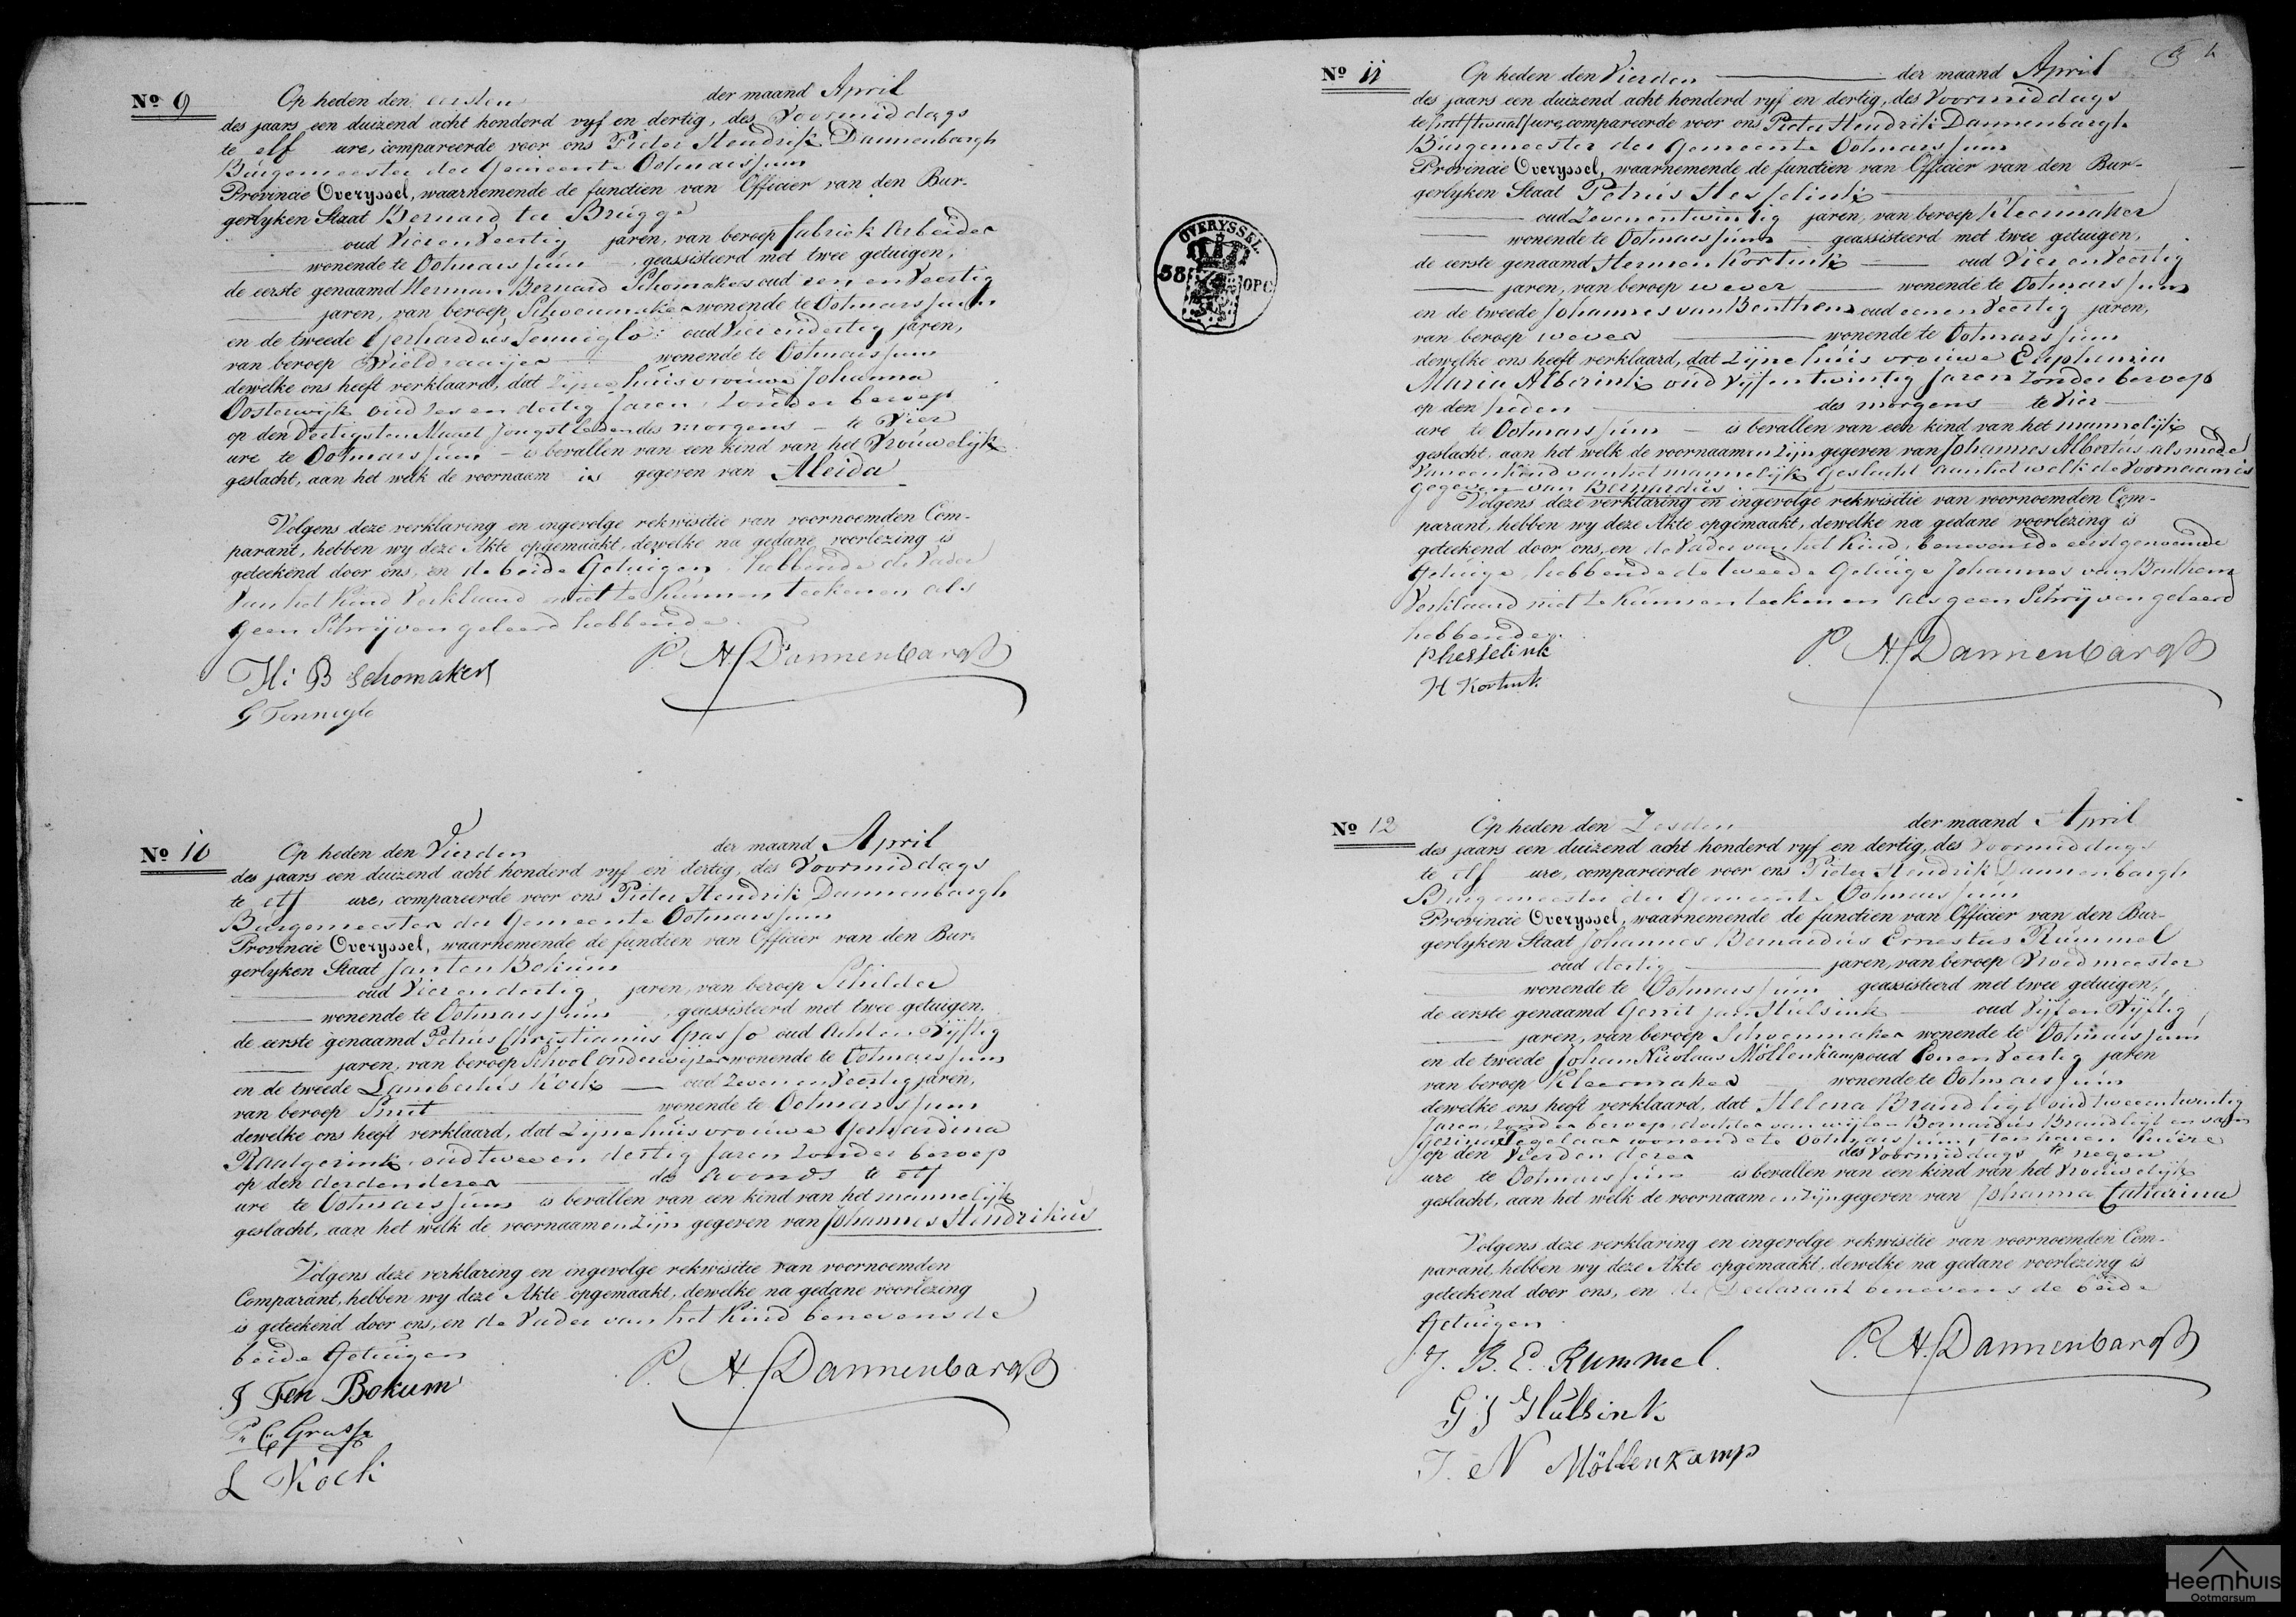 Nº 9 Op heden den eersten der maand April
des jaars een duizend acht honderd vyf en dertig, des Voormiddags
te elf ure, compareerde voor ons Pieter Hendrik Dannenbargh
Burgemeester der Gemeente Ootmarssum
Provincie Overyssel, waarnemende de functien van Officier van den Bur-
gerlyken Staat Bernard ter Brugge
oud Vier en Veertig jaren, van beroep fabriek Arbeider
wonende te Ootmarssum geassisteerd met twee getuigen,
de eerste genaamd Herman Bernard Schomakers oud een en Veertig
jaren, van beroep Schoenmaker wonende te Ootmarssum
en de tweede Gerhardus Tenniglo oud Vier en dertig jaren,
van beroep Wieldraaijer wonende te Ootmarssum
dewelke ons heeft verklaard, dat zijne huisvrouwe Johanna
Oosterwijk oud zes en dertig Jaren zonder beroep
op den dertigsten Maart Jongstleden des morgens te Vier
ure te Ootmarssum is bevallen van een kind van het Vrouwelijk
geslacht, aan het welk de voornaam is gegeven van Aleida
Volgens deze verklaring en ingevolge rekwisitie van voornoemden Com-
parant, hebben wy deze Akte opgemaakt, dewelke na gedane voorlezing is
geteekend door ons, en de beide Getuigen hebbende de Vader
van het Kind Verklaard niet te kunnen teekenen als
geen Schrijven geleerd hebbende
P. H. Dannenbargh
H: B Schomakers
G Tenniglo
Nº 10 Op heden den Vierden der maand April
des jaars een duizend acht honderd vyf en dertig, des Voormiddags
te elf ure, compareerde voor ons Pieter Hendrik Dannenbargh
Burgemeester der Gemeente Ootmarssum
Provincie Overyssel, waarnemende de functien van Officier van den Bur-
gerlyken Staat Jan ten Bokum
oud Vier en dertig jaren, van beroep Schilder
wonende te Ootmarssum geassisteerd met twee getuigen,
de eerste genaamd Petrus Christianus Grasso oud Acht en Vijftig
jaren, van beroep School onderwijzer wonende te Ootmarssum
en de tweede Lambertus Kock oud Zeven en Veertig jaren,
van beroep Smit wonende te Ootmarssum
dewelke ons heeft verklaard, dat Zijne huisvrouwe Gerhardina
Raatgerink oud twee en dertig Jaren zonder beroep
op den derden dezer des Avonds te elf
ure te Ootmarssum is bevallen van een kind van het mannelijk
geslacht, aan het welk de voornaamen zijn gegeven van Johannes Hendrikus
Volgens deze verklaring en ingevolge rekwisitie van voornoemden
Comparant, hebben wy deze Akte opgemaakt, dewelke na gedane voorlezing
is geteekend door ons, en de Vader van het Kind benevens de
beide Getuigen
P. H. Dannenbargh
J Ten Bokum
P. C. Grasso
L Kock
OVERYSSEL
58 OPC
Nº 11 Op heden den Vierden der maand April
des jaars een duizend acht honderd vyf en dertig, des Voormiddags
te half twaalf ure, compareerde voor ons Pieter Hendrik Dannenbargh
Burgemeester der Gemeente Ootmarssum
Provincie Overyssel, waarnemende de functien van Officier van den Bur-
gerlyken Staat Petrus Hesselink
oud Zeven en twintig jaren, van beroep Kleermaker
wonende te Ootmarssum geassisteerd met twee getuigen,
de eerste genaamd Hermen Kortink oud Vier en Veertig
jaren, van beroep wever wonende te Ootmarssum
en de tweede Johannes van Benthem oud eenen Veertig jaren,
van beroep wever wonende te Ootmarssum
dewelke ons heeft verklaard, dat zijne huisvrouwe Euphemia
Maria Alberink oud Vijf en twintig Jaren zonder beroep
op den heden des morgens te Vier
ure te Ootmarssum is bevallen van een kind van het mannelijk
geslacht, aan het welk de voornaamen zijn gegeven van Johannes Albertus alsmede
van een Kind van het mannelijk Geslacht aan het welk de Voornaam is
gegeven van Bernardus
Volgens deze verklaring en ingevolge rekwisitie van voornoemden Com-
parant, hebben wy deze Akte opgemaakt, dewelke na gedane voorlezing is
geteekend door ons, en de Vader van het Kind, benevens de eerstgenoemde
Getuige, hebbende de tweede Getuige Johannes van Benthem
Verklaard niet te kunnen teekenen als geen Schrijven geleerd
hebbende
P. H. Dannenbargh
P hesselink
H Kortink
Nº 12 Op heden den Zesden der maand April
des jaars een duizend acht honderd vyf en dertig, des Voormiddags
te elf ure, compareerde voor ons Pieter Hendrik Dannenbargh
Burgemeester der Gemeente Ootmarssum
Provincie Overyssel, waarnemende de functien van Officier van den Bur-
gerlyken Staat Johannes Bernardus Ernestus Rummel
oud dertig jaren, van beroep Vroedmeester
wonende te Ootmarssum geassisteerd met twee getuigen,
de eerste genaamd Gerrit Jan Hulsink oud Vijf en Vijftig
jaren, van beroep Schoenmaker wonende te Ootmarssum
en de tweede Johan Nicolaas Möllenkamp oud Eenen Veertig jaren
van beroep Kleermaker wonende te Ootmarssum
dewelke ons heeft verklaard, dat Helena Brundligt oud twee en twintig
Jaren, zonder beroep, dochter van wijlen Bernardus Brundligt en van
Gezina Tegelaar wonende te Ootmarssum, ten haren huize
op den Vierden dezer des Voormiddags te negen
ure te Ootmarssum is bevallen van een kind van het Vrouwelijk
geslacht, aan het welk de voornaamen zijn gegeven van Johanna Catharina
Volgens deze verklaring en ingevolge rekwisitie van voornoemden Com-
parant, hebben wy deze Akte opgemaakt, dewelke na gedane voorlezing is
geteekend door ons, en de Declarant benevens de beide
Getuigen
P. H. Dannenbargh
J. B. E. Rummel.
G J Hulsink
J. N Möllenkamp
Heemhuis
Ootmarsum